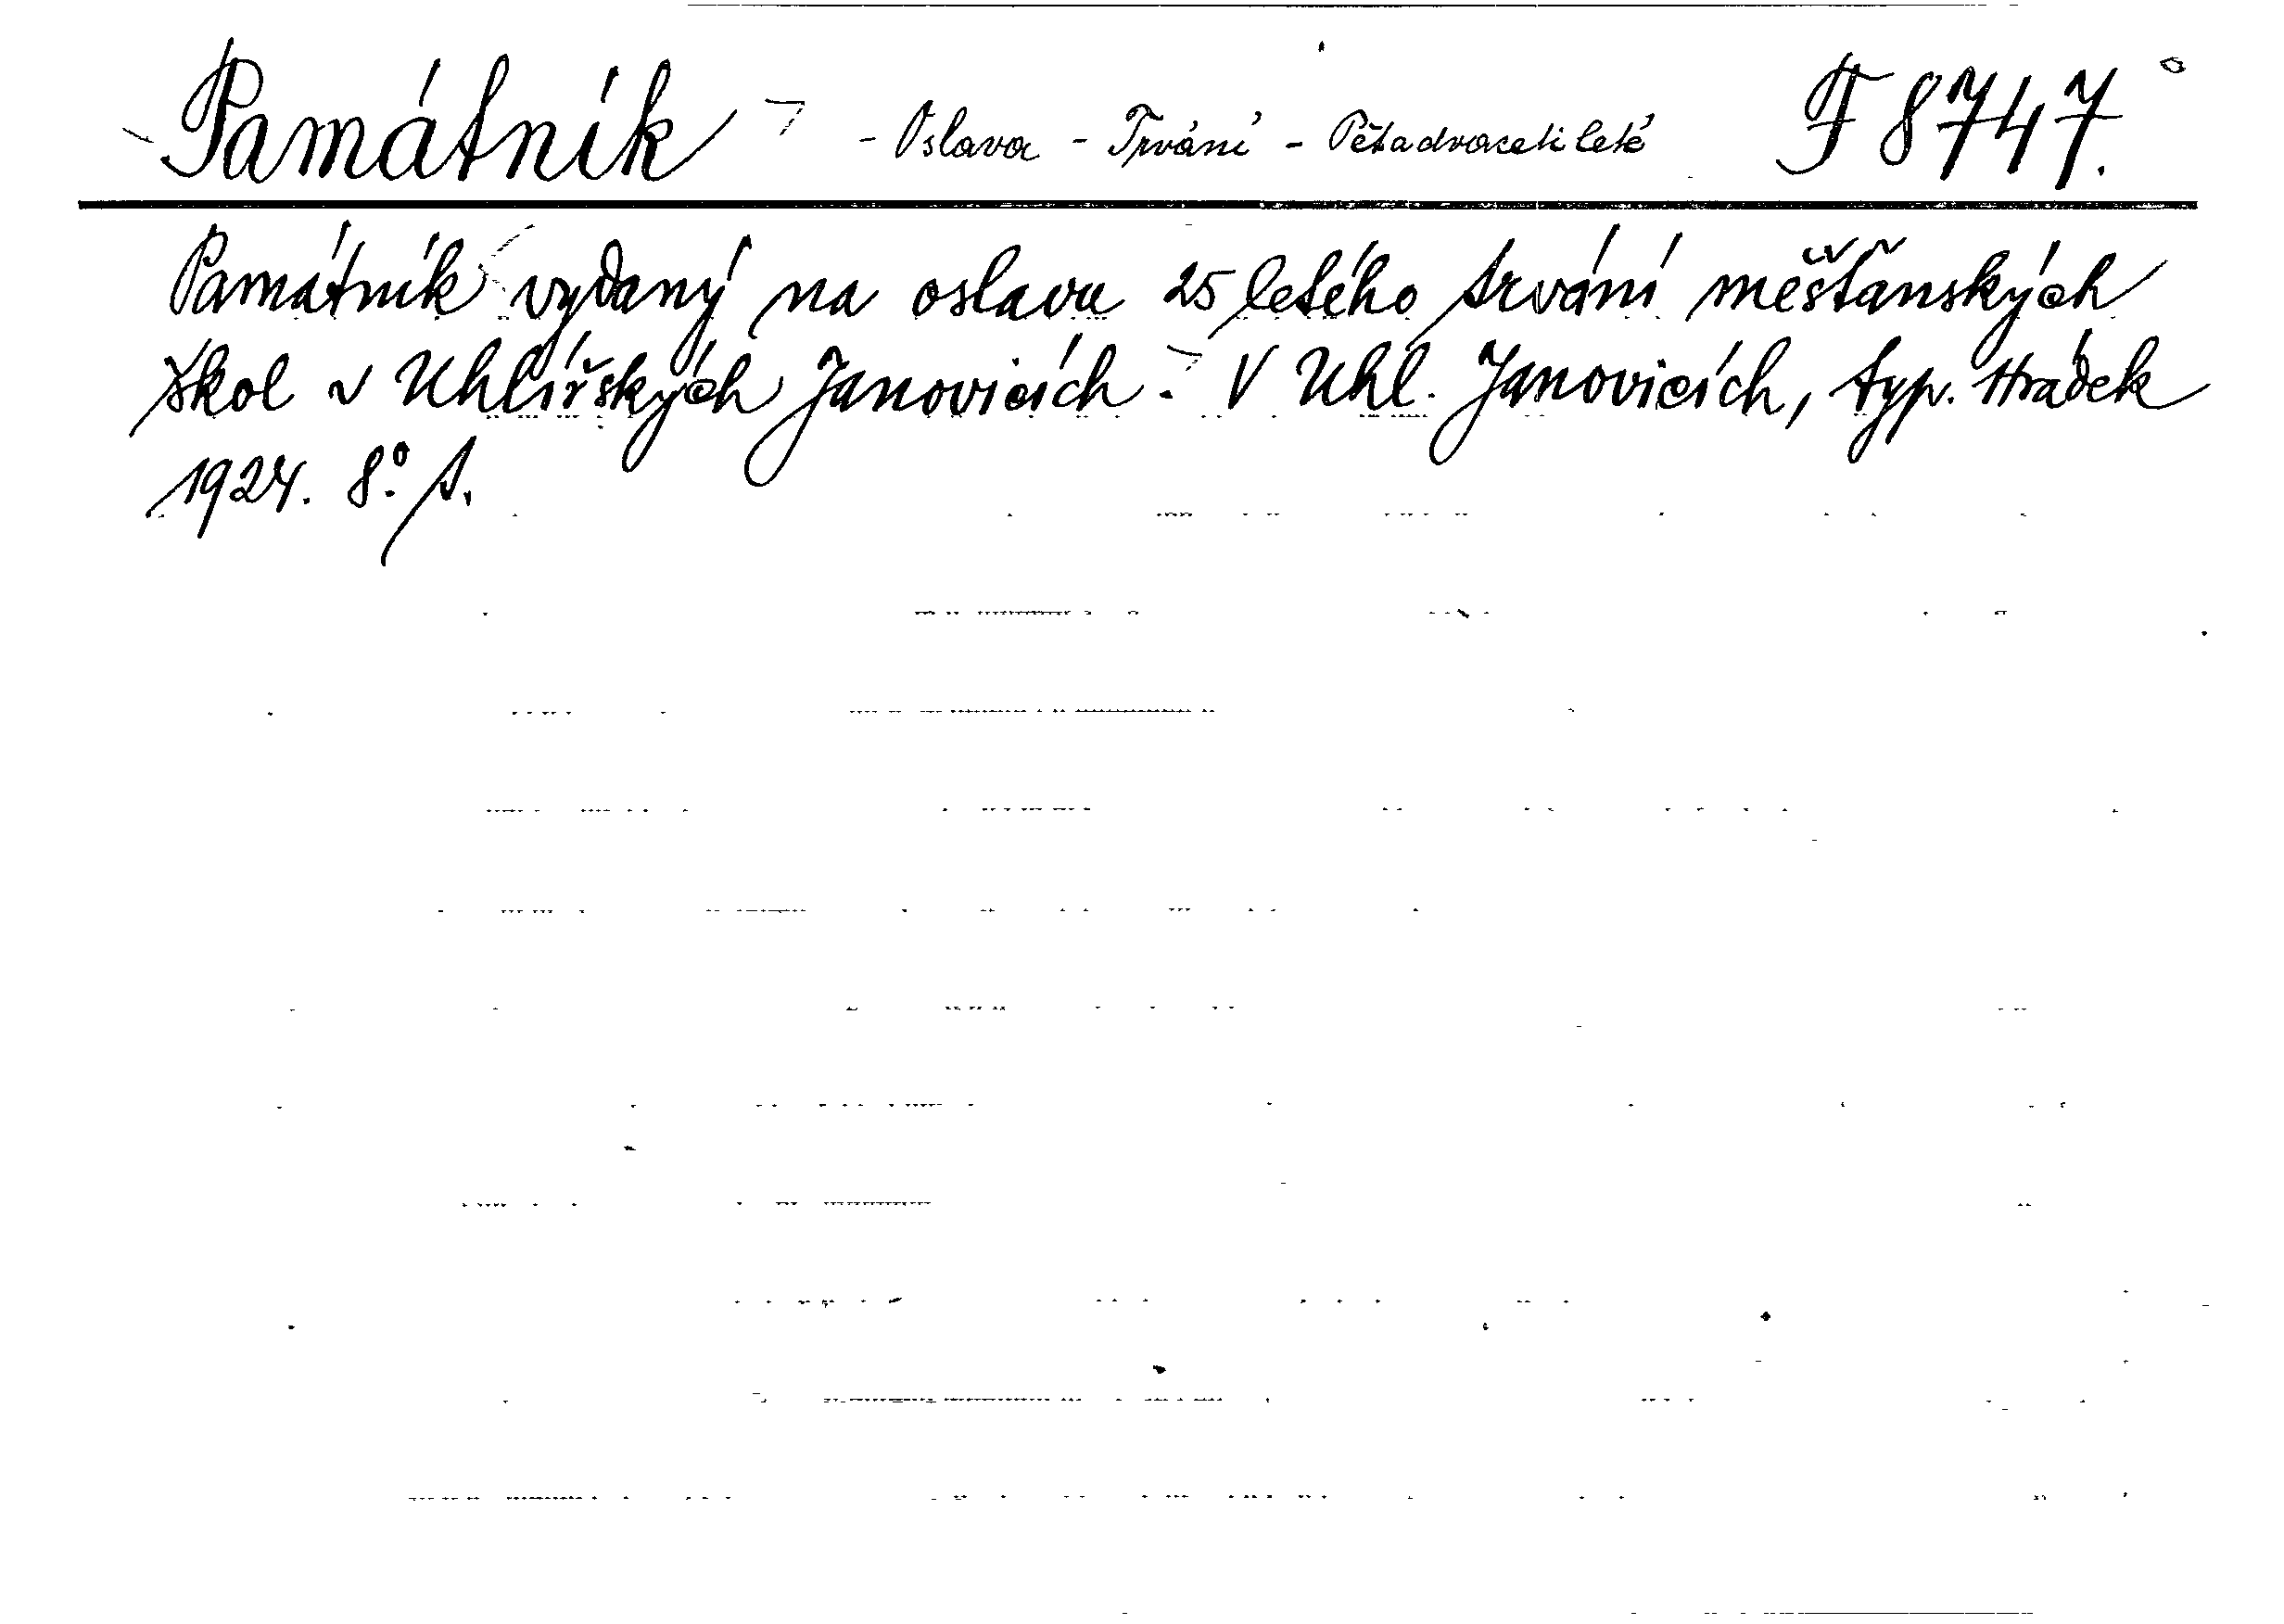 Památník - Oslava - Trvání - Pětadvacetileté F 8747.
Památník vydaný na oslavu 25 letého trvání měšťanských
škol v Uhlířských Janovicích. V Uhl. Janovicích, typ. Hrádek
1924. 8°. A.